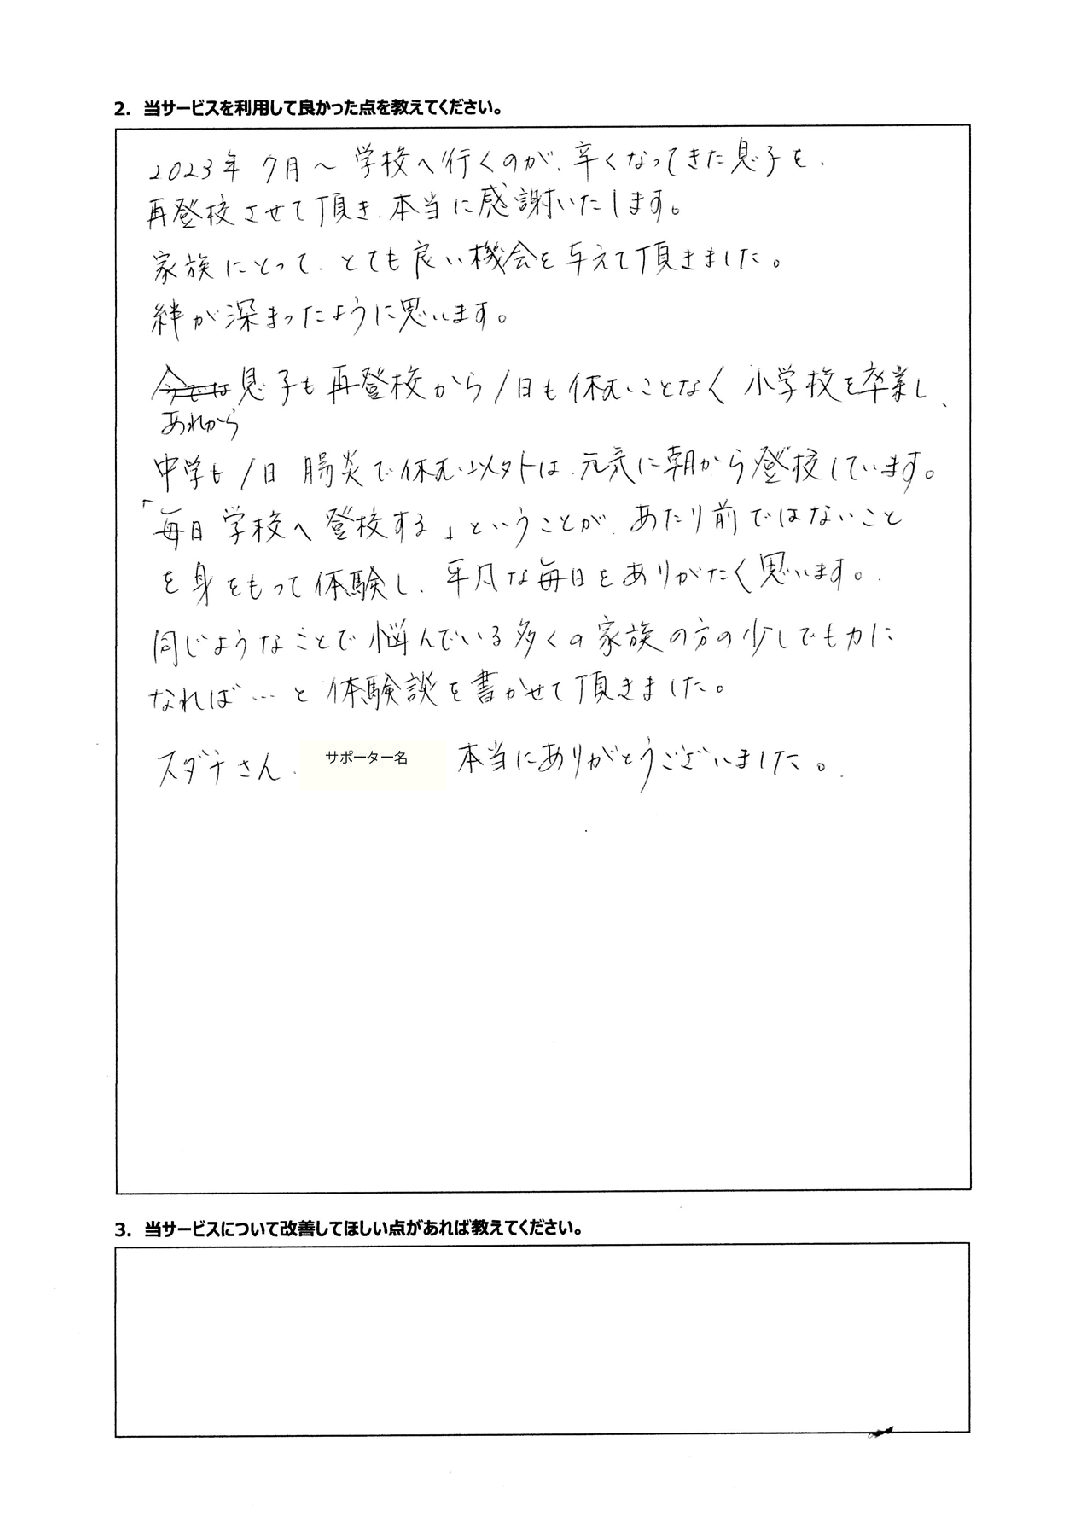 2. 当サービスを利用して良かった点を教えてください。
2023年7月～学校へ行くのが、辛くなってきた息子を、
再登校させて頂き、本当に感謝いたします。
家族にとって、とても良い機会を与えて頂きました。
絆が深まったように思います。
今では息子も再登校から1日も休むことなく小学校を卒業し、
あれから
中学も1日腸炎で休む以外は、元気に朝から登校しています。
「毎日学校へ登校する」ということが、あたり前ではないこと
を身をもって体験し、平凡な毎日をありがたく思います。
同じようなことで悩んでいる多くの家族の方の少しでも力に
なれば…と体験談を書かせて頂きました。
スダチさん、サポーター名 本当にありがとうございました。
3. 当サービスについて改善してほしい点があれば教えてください。